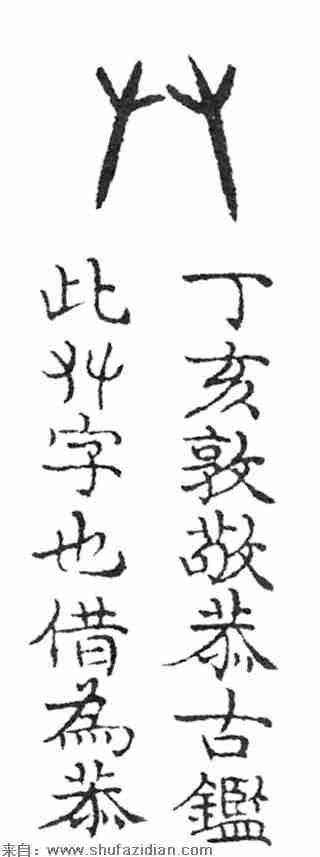 丁亥敦敬恭古鑑
此廾字也借為恭
来自：www.shufazidian.com